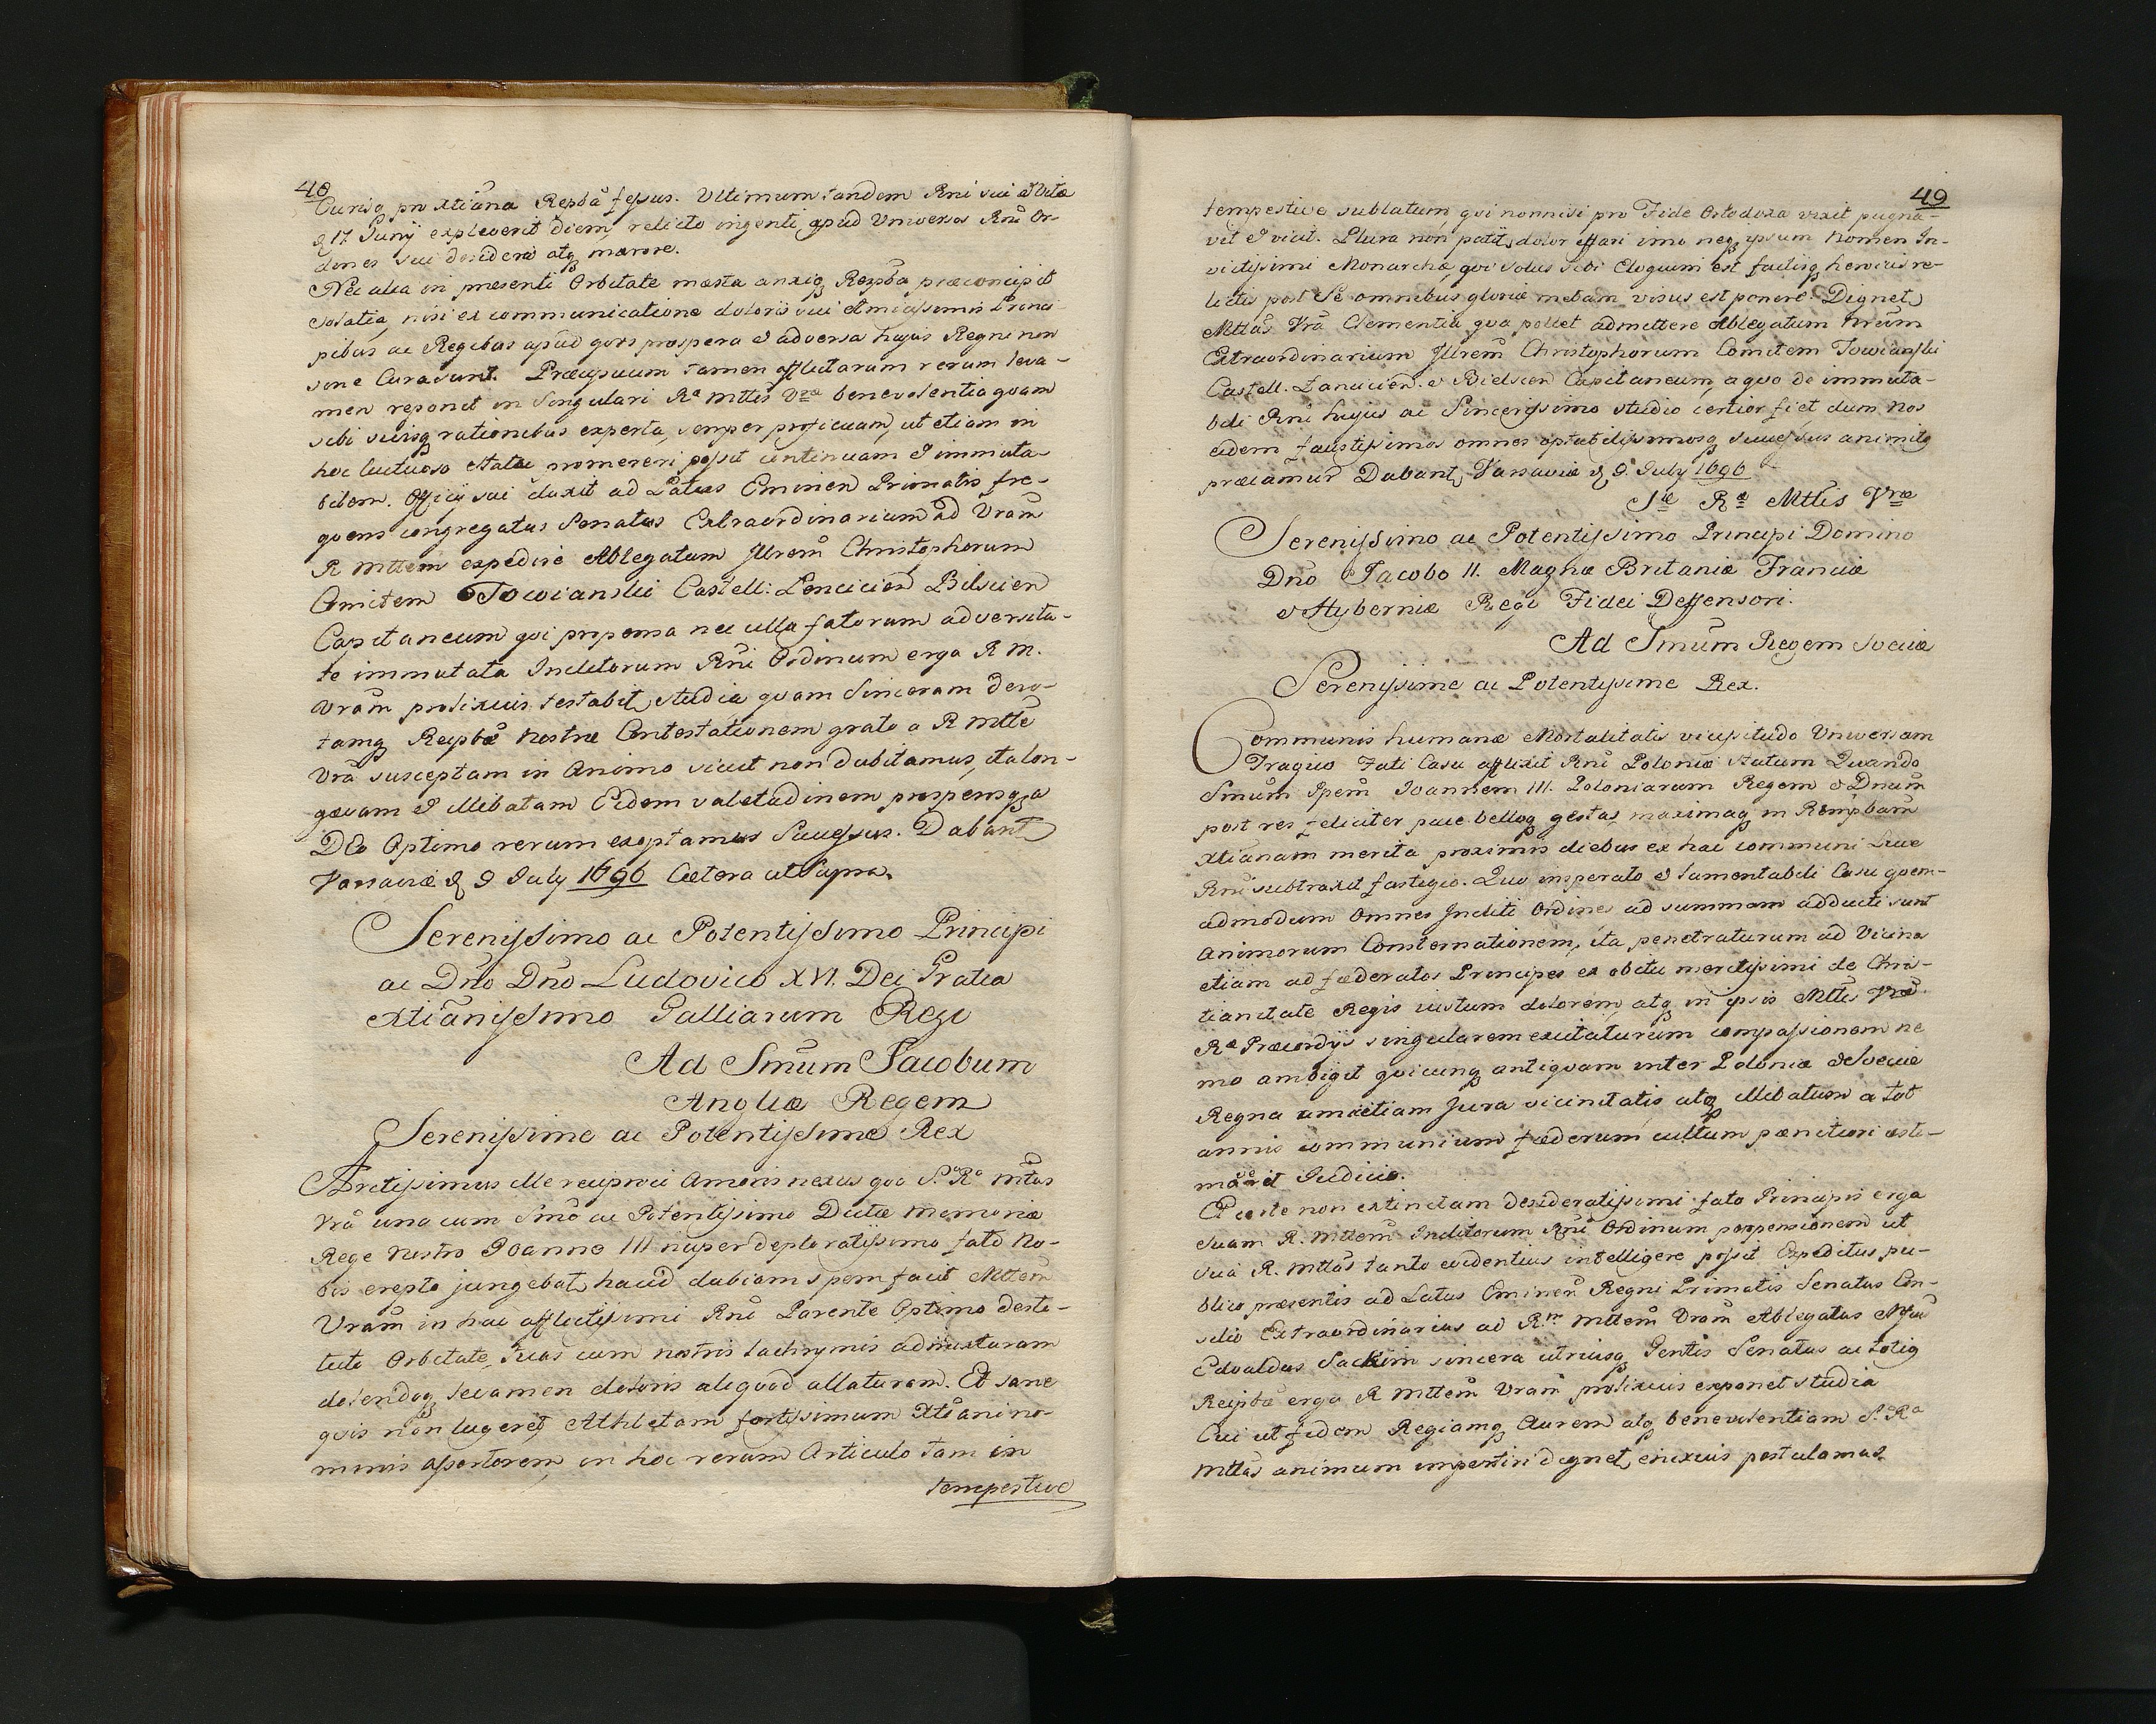 48
Curisq pro Xtiana Repba fessus. Ultimum tandem Rni sui & Vitæ
d 17 Junÿ expleverit diem, relicto ingenti apud Universos Rni Or-
dines sui desiderio atq mærore.
Nec alia in præsenti Orbitate mæsta anxiaq Respba præconcipit
solatia, nisi ex communicatione doloris sui Amicissimis Princi-
pibus ac Regibus apud quos prospera & adversa hujus Regni non
sine Cura sunt. Præcipuum tamen afflictarum rerum leva-
men reponit in Singulari Ræ Mttis Vræ benevolentia quam
sibi suisq rationibus experta, semper proficuam, ut etiam in
hoc luctuoso statu promereri possit continuam & immuta-
bilem. Officÿ sui duxit ad Latus Eminen Primatis fre-
quens congregatus Senatus Extraordinarium ad Vram
R Mttem expedire Ablegatum Illrem Christophorum
Comitem Towianski Castell: Lencicien Bilscien
Capitaneum qui propensa nec ulla fatorum adversita-
te immutata Inclitorum Rni Ordinum erga R M.
Vram prolixius testabit studia quam Sinceram devo-
tamq Reipbæ Nostræ Contestationem grato a R Mtte
Vra susceptam in Animo sicut non dubitamus, ita lon-
gævam & illibatam Eidem valetudinem prosperosq a
DEo Optimo rerum exoptamus Successus. Dabant
Varsaviæ d 9 July 1696 Cætera ut Supra.
Serenissimo ac Potentissimo Principi
ac Dno Dno Ludovico XVI. Dei Gratia
Xtianissimo Galliarum Regi
Ad Smum Jacobum
Angliæ Regem
Serenissime ac Potentissime Rex
Arctissimus ille reciproci Amoris nexus quo S.a R.a Mttas
Vra una cum Smo ac Potentissimo Divæ Memoriæ
Rege Nostro Joanne III nuper deploratissimo fato No-
bis erepto jungebat, haud dubiam spem facit Mttem
Vram in hac afflictissimi Rni Parente Optimo desti-
tuti Orbitate, suas cum nostris lachrymis admixturam
dolendoq levamen doloris aliquod allaturam. Et sane
quis non lugeret Athletam fortissimum Xtiani no-
minis assertorem, in hoc rerum Articulo tam in
tempestive
49
tempestive sublatum, qui nonnisi pro Fide Ortodoxa vixit pugna-
vit & vicit. Plura non patit dolor effari imo neq ipsum Nomen In-
victissimi Monarchæ, qui solus sibi Elogium est factisq heroicis re-
lictis post Se omnibus gloriæ metam visus est ponere. Dignet
Mttas Vra Clementia qua pollet admittere Ablegatum Nrum
Extraordinarium Illrem Christophorum Comitem Towianski
Castell. Lancicien. & Bielscen Capitaneum, a quo de immuta-
bili Rni hujus ac Sincerissimo studio certior fiet dum Nos
eidem faustissimos omnes optatissimosq successus animitq
præcamur Dabant Varsaviæ d 9. July 1696
Sæ Ræ Mttis Vræ
Serenissimo ac Potentissimo Principi Domino
Dno Jacobo II. Magnæ Britaniæ Franciæ
& Hyberniæ Regi Fidei Deffensori.
Ad Smum Regem Sveciæ
Serenissime ac Potentissime Rex.
Communis humanæ Mortalitatis vicissitudo Universam
Tragico Fati Casu afflixit Rni Poloniæ Statum Quando
Smum Ipem Joannem III. Poloniarum Regem & Dnum
post res feliciter pace belloq gestas, maximaq in Rempbam
Xtianam merita proximis diebus ex hac communi Luce
Rni subtraxit fastigio. Quo insperato & lamentabili Casu quem-
admodum Omnes Incliti Ordines ad summam adducti sunt
Animorum Consternationem, ita penetraturum ad Vicinos
etiam ad fæderatos Principes ex obitu meritissimi de Chris-
tianitate Regis justum dolorem, atq in ipsis Mttis Vræ
Ræ Præcordÿs singularem excitaturum compassionem ne
mo ambigit quicunq antiquam inter Poloniæ & Sveciæ
Regna amicitiam Jura vicinitatis atq illibatum a tot
annis communium fæderum cultum penitiori æsti-
maverit Judicio.
Et certe non extinctam desideratissimi fato Principis erga
Suam R. Mttem Inclitorum Rni Ordinum propensionem ut
Sua R. Mttas tanto evidentius intelligere possit Expeditus pu-
blico præsentis ad Latus Eminen Regni Primatis Senatus Con-
silio Extraordinarius ad R.m Mttem Vram Ablegatus Nfcus
Edvaldus Sacken sincera utriusq Gentis Senatus ac totiq
Reipbæ erga R Mttem Vram prolixius exponet studia
Cui ut fidem Regiamq Aurem atq benevolentiam S.a R.a
Mttas animum impertiri dignet, enixius postulamus.